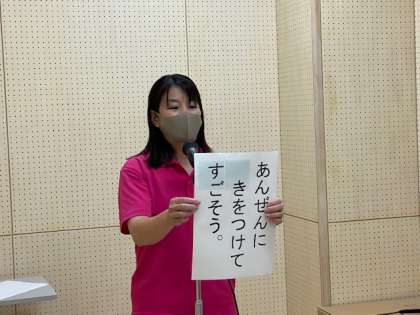 あんぜんに
きをつけて
すごそう。